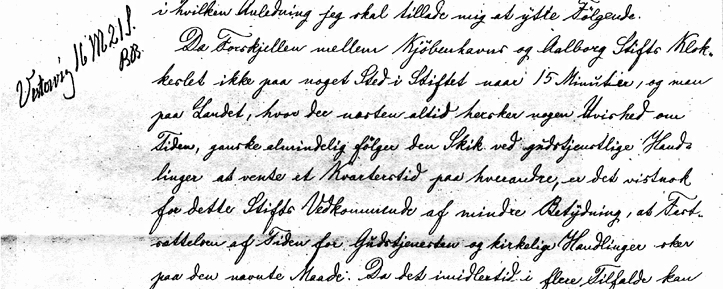 i hvilken Anledning jeg skal tillade mig at ytre Følgende.
Vestervig 16 M 21 S.
B.B.
Da Forskjellen mellem Kjøbenhavns og Aalborg Stifts Klok-
keslet ikke paa noget Sted i Stiftet naar 15 Minuter, og man
paa Landet, hvor der næsten altid hersker nogen Uvished om
Tiden, ganske almindelig følger den Skik ved gudstjenstlige Hand-
linger at vente et Kvarterstid paa hverandre, er det vistnok
for dette Stifts Vedkommende af mindre Betydning, at Fast-
sættelsen af Tiden for Gudstjenesten og kirkelige Handlinger sker
paa den nævnte Maade. Da det imidlertid i flere Tilfælde kan